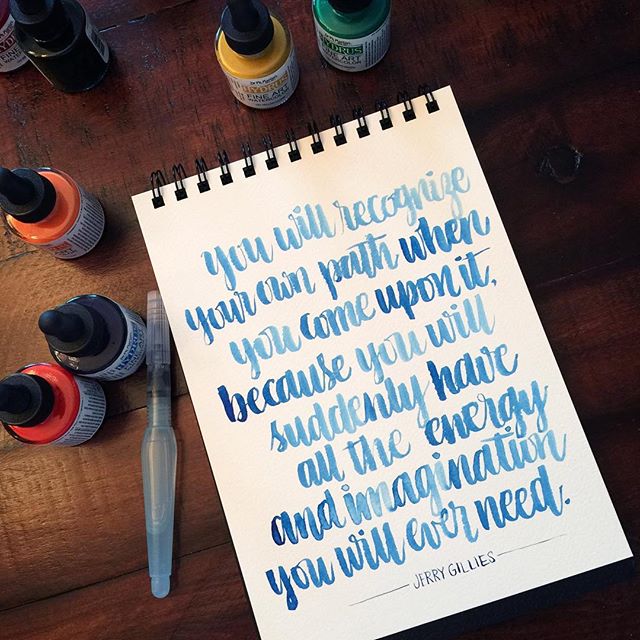 HYDRUS
FINE ART
HYDRUS
FINE ART
you will recognize
your own path when
you come upon it,
because you will
suddenly have
all the energy
and imagination
you will ever need.
JERRY GILLIES